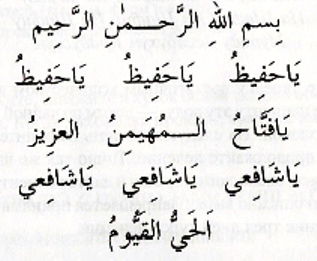 بِسمِ اللهِ الرَّحـــمٰنِ الرَّحِيمِ
يَاحَفِيظُ يَاحَفِيظُ يَاحَفِيظُ
يَافَتَّاحُ الـــمُهَيمِن العَزِيزُ
ياشَافِعي ياشَافعي ياشَافِعي
الحَيُّ القَيُّومُ